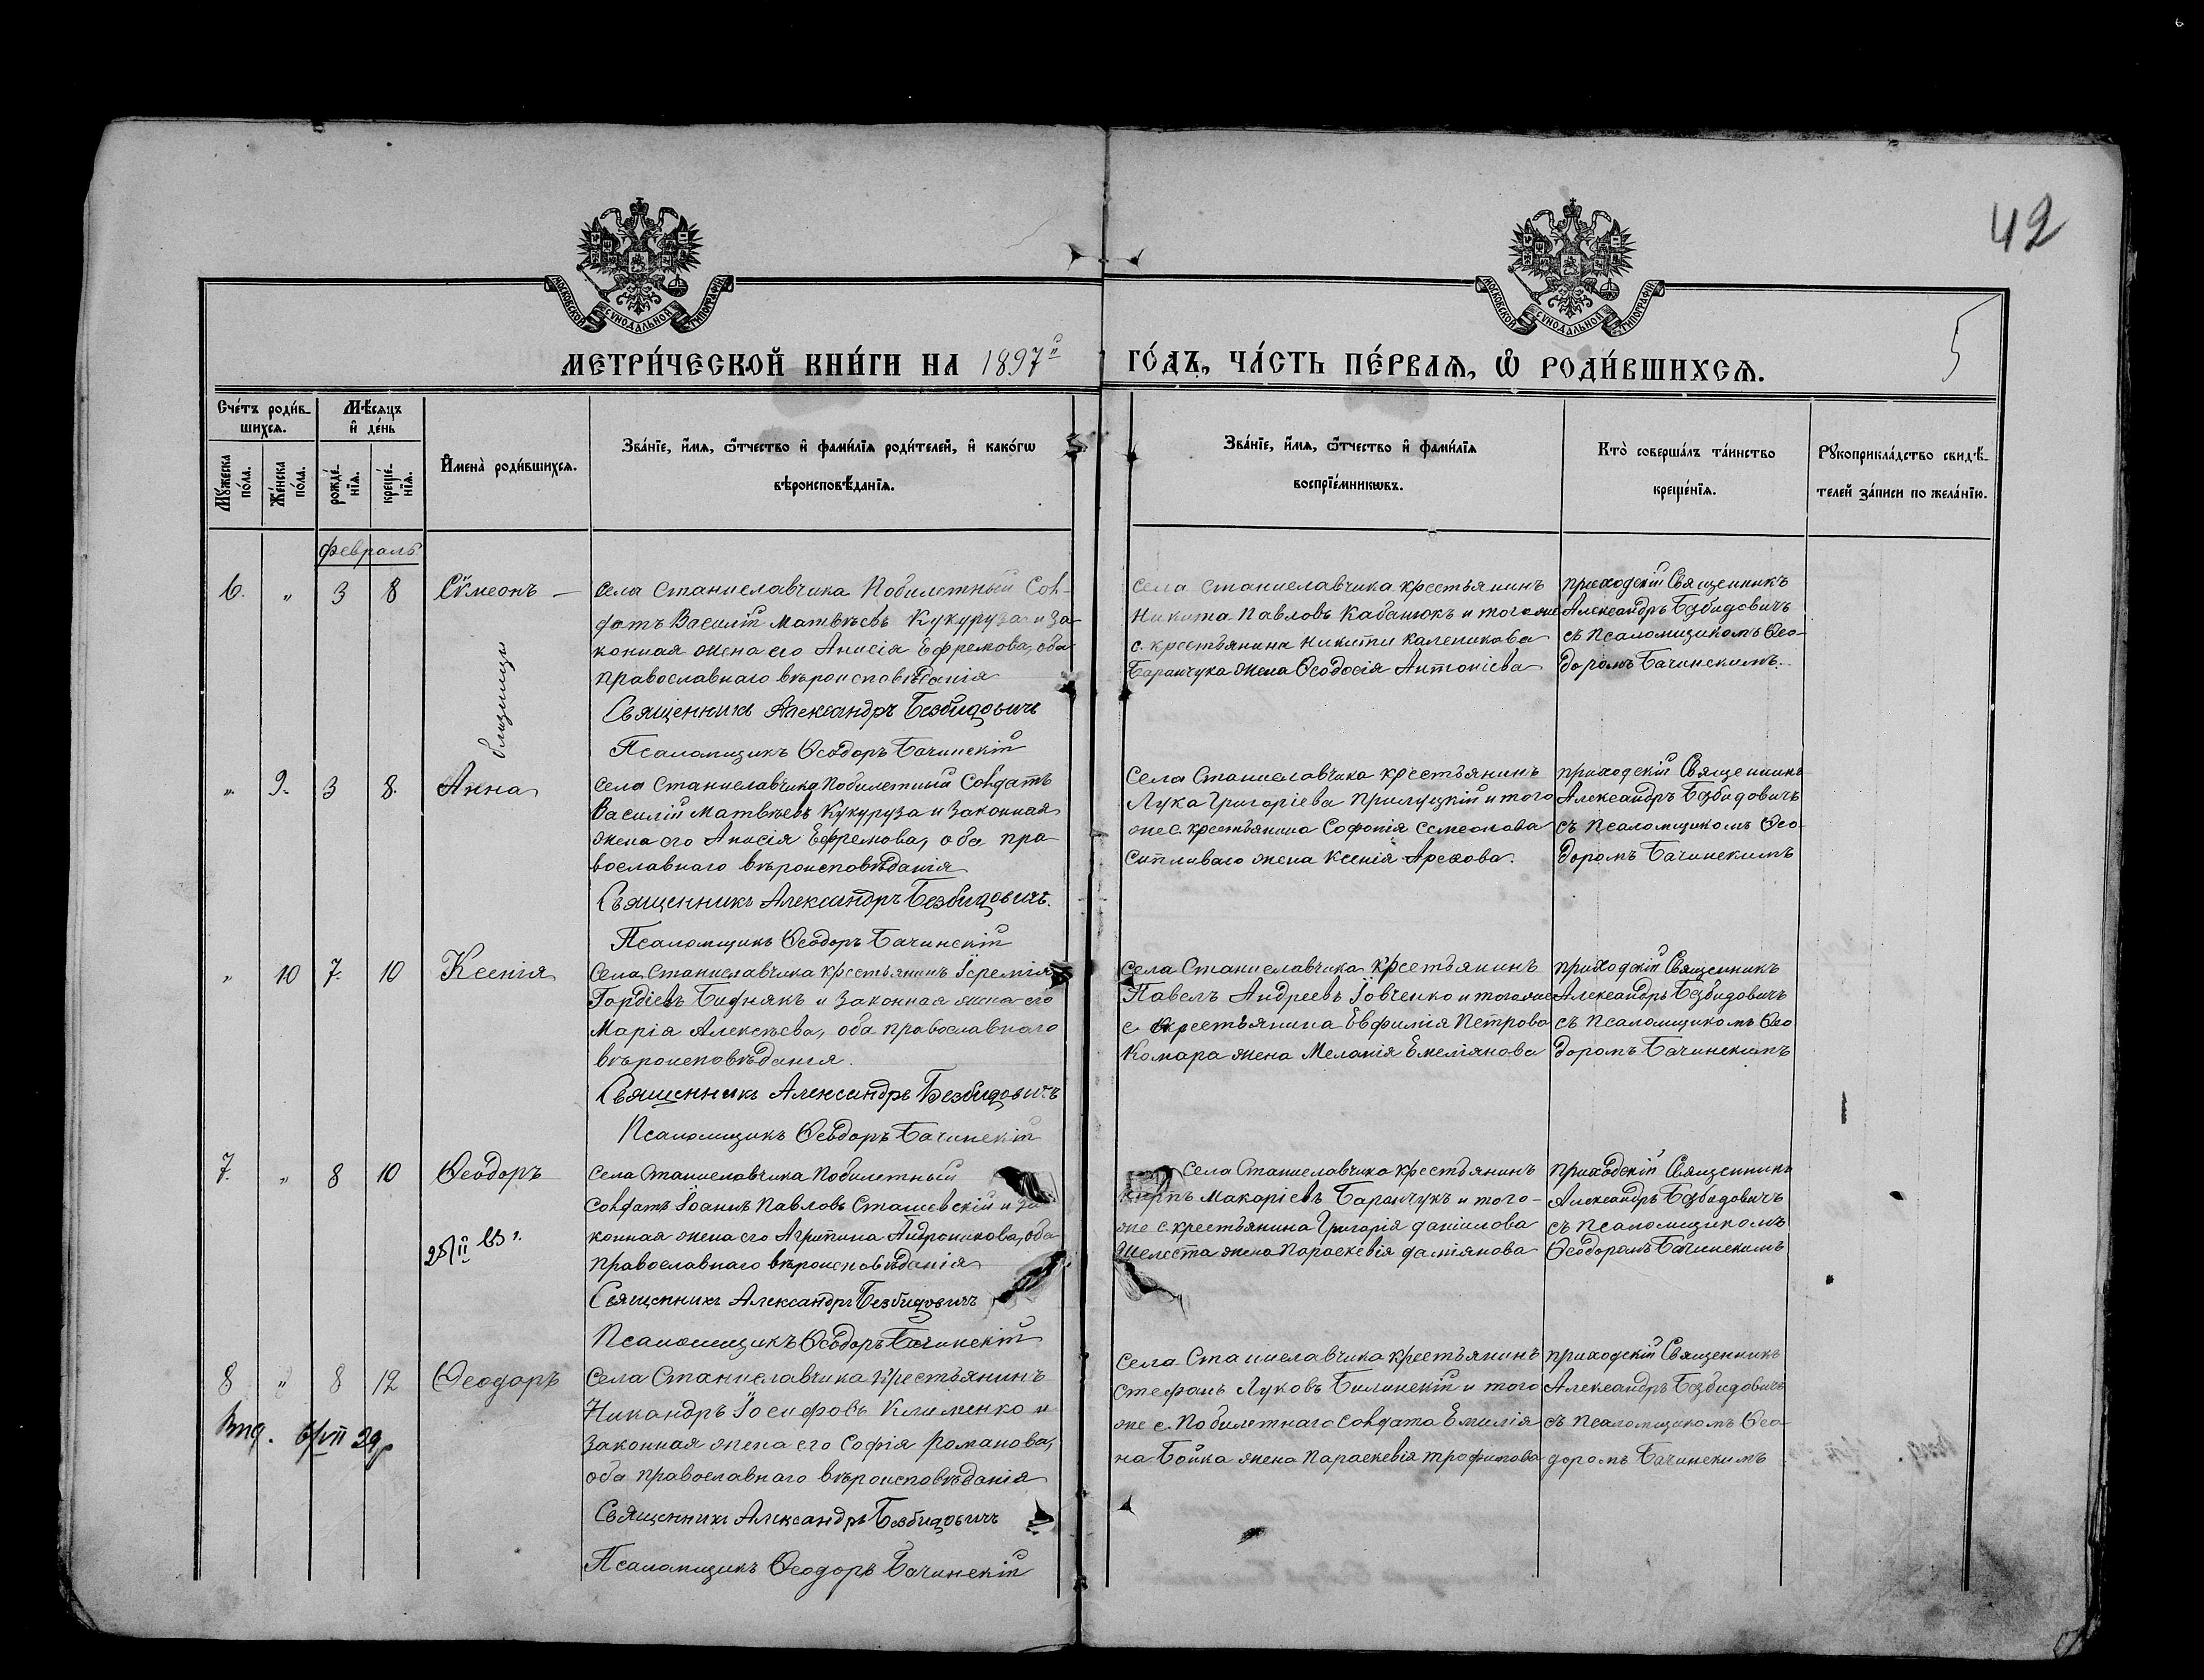 42
5
МОСКОВСКОЙ СУНОДАЛЬНОЙ ТИПОГРАФІИ
МОСКОВСКОЙ СУНОДАЛЬНОЙ ТИПОГРАФІИ
МЕТРИ́ЧЕСКОЙ КНИ́ГИ НА 1897й ГО́ДЪ, ЧА́СТЬ ПЕ́РВАѦ, Ѡ РОДИ́ВШИХСѦ.
Сче́тъ роди́в-
шихсѧ.
Мѣ́сѧцъ
и де́нь
Мꙋ́жеска
по́ла.
Же́нска
по́ла.
рожде́-
нїѧ.
креще́-
нїѧ.
И҆мена̀ роди́вшихсѧ.
Зва́нїе, и҆́мѧ, ѻ҆́тчество и҆ фами́лїѧ роди́телей, и҆ како́гѡ
вѣроисповѣ́данїѧ.
Зва́нїе, и҆́мѧ, ѻ҆́тчество и҆ фами́лїѧ
воспрїе́мникѡвъ.
Кто̀ соверша́лъ та́инство
креще́нїѧ.
Рꙋкоприкла́дство свидѣ́-
телей за́писи по жела́нїю.
февраль
6. " 3 8 Сѵмеонъ —
близнецы
села Станиславчика Побилетный Сол-
датъ Василій Матвѣевъ Кукуруза и за-
конная жена его Анисія Ефремова, оба
православнаго вѣроисповѣданія
Священникъ Александръ Безбидовичъ
Псаломщикъ Ѳеодоръ Бачинскій
села Станиславчика крестьянинъ
Никита Павловъ Кабанюкъ и того же
с. крестьянина Никиты Каленикова
Баранчука жена Ѳеодосія Антоніева
приходскій Священникъ
Александръ Безбидовичъ
съ псаломщикомъ Ѳео-
доромъ Бачинскимъ.
" 9. 3 8. Анна
села Станиславчика Побилетный Солдатъ
Василій Матвѣевъ Кукуруза и законная
жена его Анисія Ефремова, оба пра-
вославнаго вѣроисповѣданія
Священникъ Александръ Безбидовичъ.
Псаломщикъ Ѳеодоръ Бачинскій
Села Станиславчика крестьянинъ
Лука Григоріева Прилуцкій и того
же с. крестьянина Софонія Семеонова
Ситливаго жена Ксенія Арехова.
приходскій Священникъ
Александръ Безбидовичъ
съ псаломщикомъ Ѳео-
доромъ Бачинскимъ
" 10 7. 10 Ксенія
села Станиславчика крестьянинъ Іеремія
Гордіевъ Бидиякъ и законная жена его
Марія Алексѣева, оба православнаго
вѣроисповѣданія.
Священникъ Александръ Безбидовичъ
Псаломщикъ Ѳеодоръ Бачинскій
села Станиславчика крестьянинъ
Павелъ Андреевъ Іовченко и того же
с. крестьянина Евфимія Петрова
Комара жена Меланія Емеліянова
приходскій Священникъ
Александръ Безбидовичъ
съ псаломщикомъ Ѳео
доромъ Бачинскимъ
7. " 8 10 Ѳеодоръ
села Станиславчика Побилетный
Солдатъ Іоаннъ Павловъ Сташевскій и за
конная жена его Агрипина Андроникова, оба
православнаго вѣроисповѣданія
Священникъ Александръ Безбидовичъ
Псаломщикъ Ѳеодоръ Бачинскій
села Станиславчика крестьянинъ
Карпъ Макаріевъ Баранчукъ и того-
же с. крестьянина Григорія даніилова
Шелеста жена Параскевія даміянова
приходскій Священникъ
Александръ Безбидовичъ
съ псаломщикомъ
Ѳеодоромъ Бачинскимъ
8 " 8 12 Ѳеодоръ
Села Станиславчика крестьянинъ
Никандръ Іосифовъ Клименко и
законная жена его Софія Романова,
оба православнаго вѣроисповѣданія
Священникъ Александръ Безбидовичъ
Псаломщикъ Ѳеодоръ Бачинскій
села Станиславчика крестьянинъ
Стефанъ Луковъ Билинскій и того
же с. Побилетнаго Солдата Емилія-
на Бойка жена Параскевія трофимова
приходскій Священникъ
Александръ Безбидовичъ
съ псаломщикомъ Ѳео-
доромъ Бачинскимъ